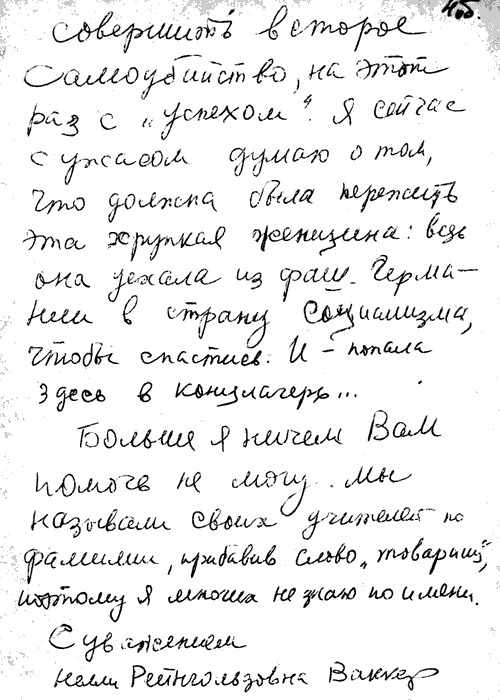 совершить второе
самоубийство, на этот
раз с „успехом“. Я сейчас
с ужасом думаю о том,
что должна была пережить
эта хрупкая женщина: ведь
она уехала из фаш. Герма-
нии в страну социализма,
чтобы спастись. И – попала
здесь в концлагерь...
Больше я ничем Вам
помочь не могу. Мы
называли своих учителей по
фамилии, прибавив слово „товарищ“,
поэтому я многих не знаю по имени.
С уважением
Нелли Рейнгольдовна Ваккер